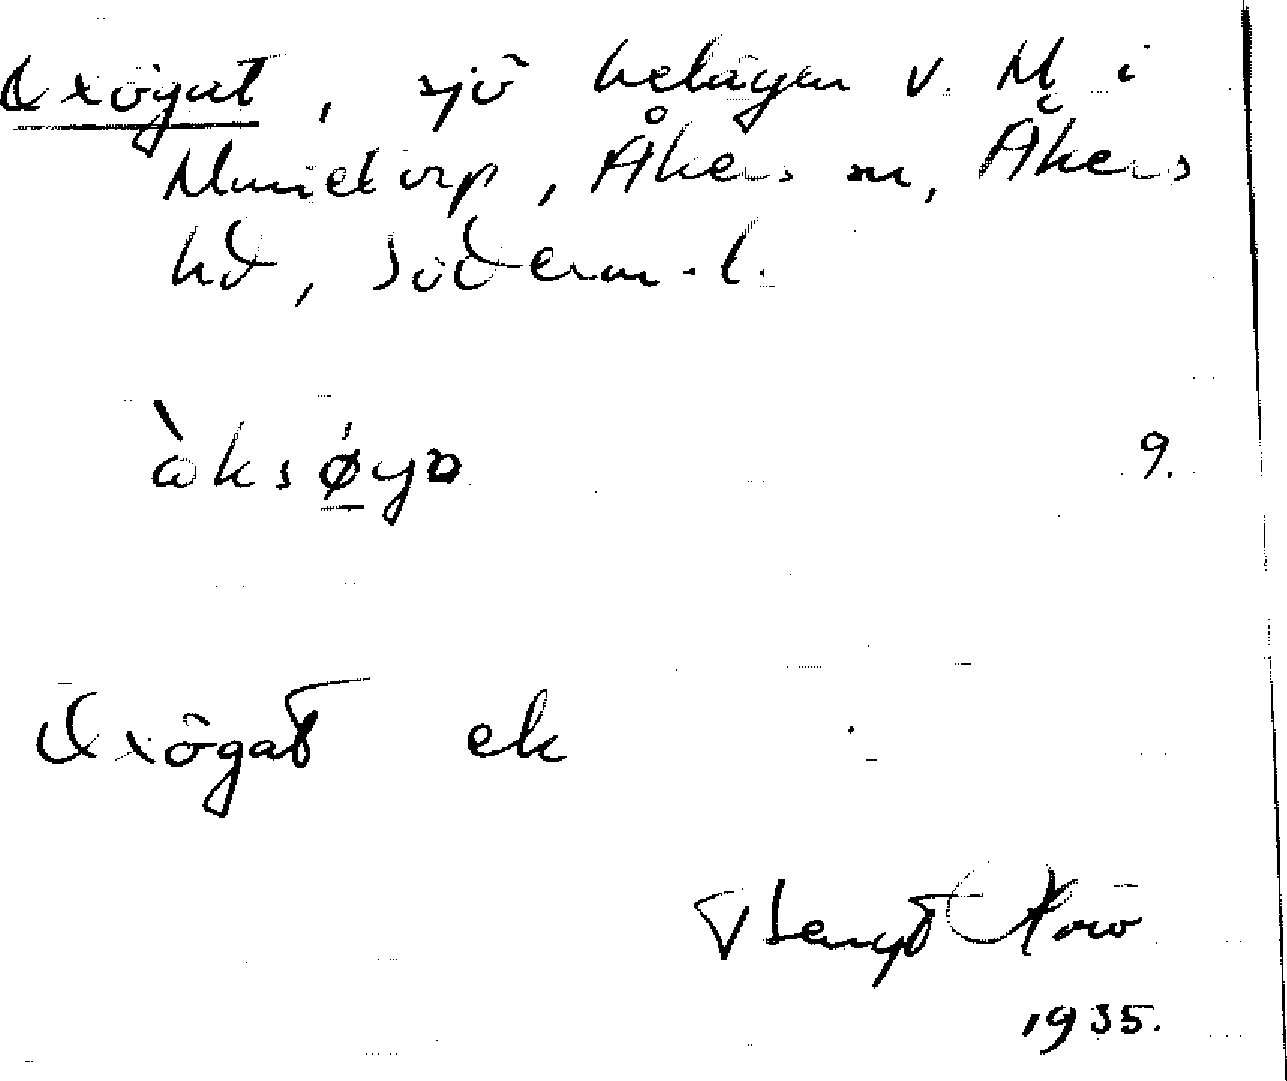 Oxögat, sjö belägen v. M i
Mundtorp, Åkers sn, Åkers
hd, Söderm. l.
òksøya 9.
Oxögat ek
Bengt
1935.